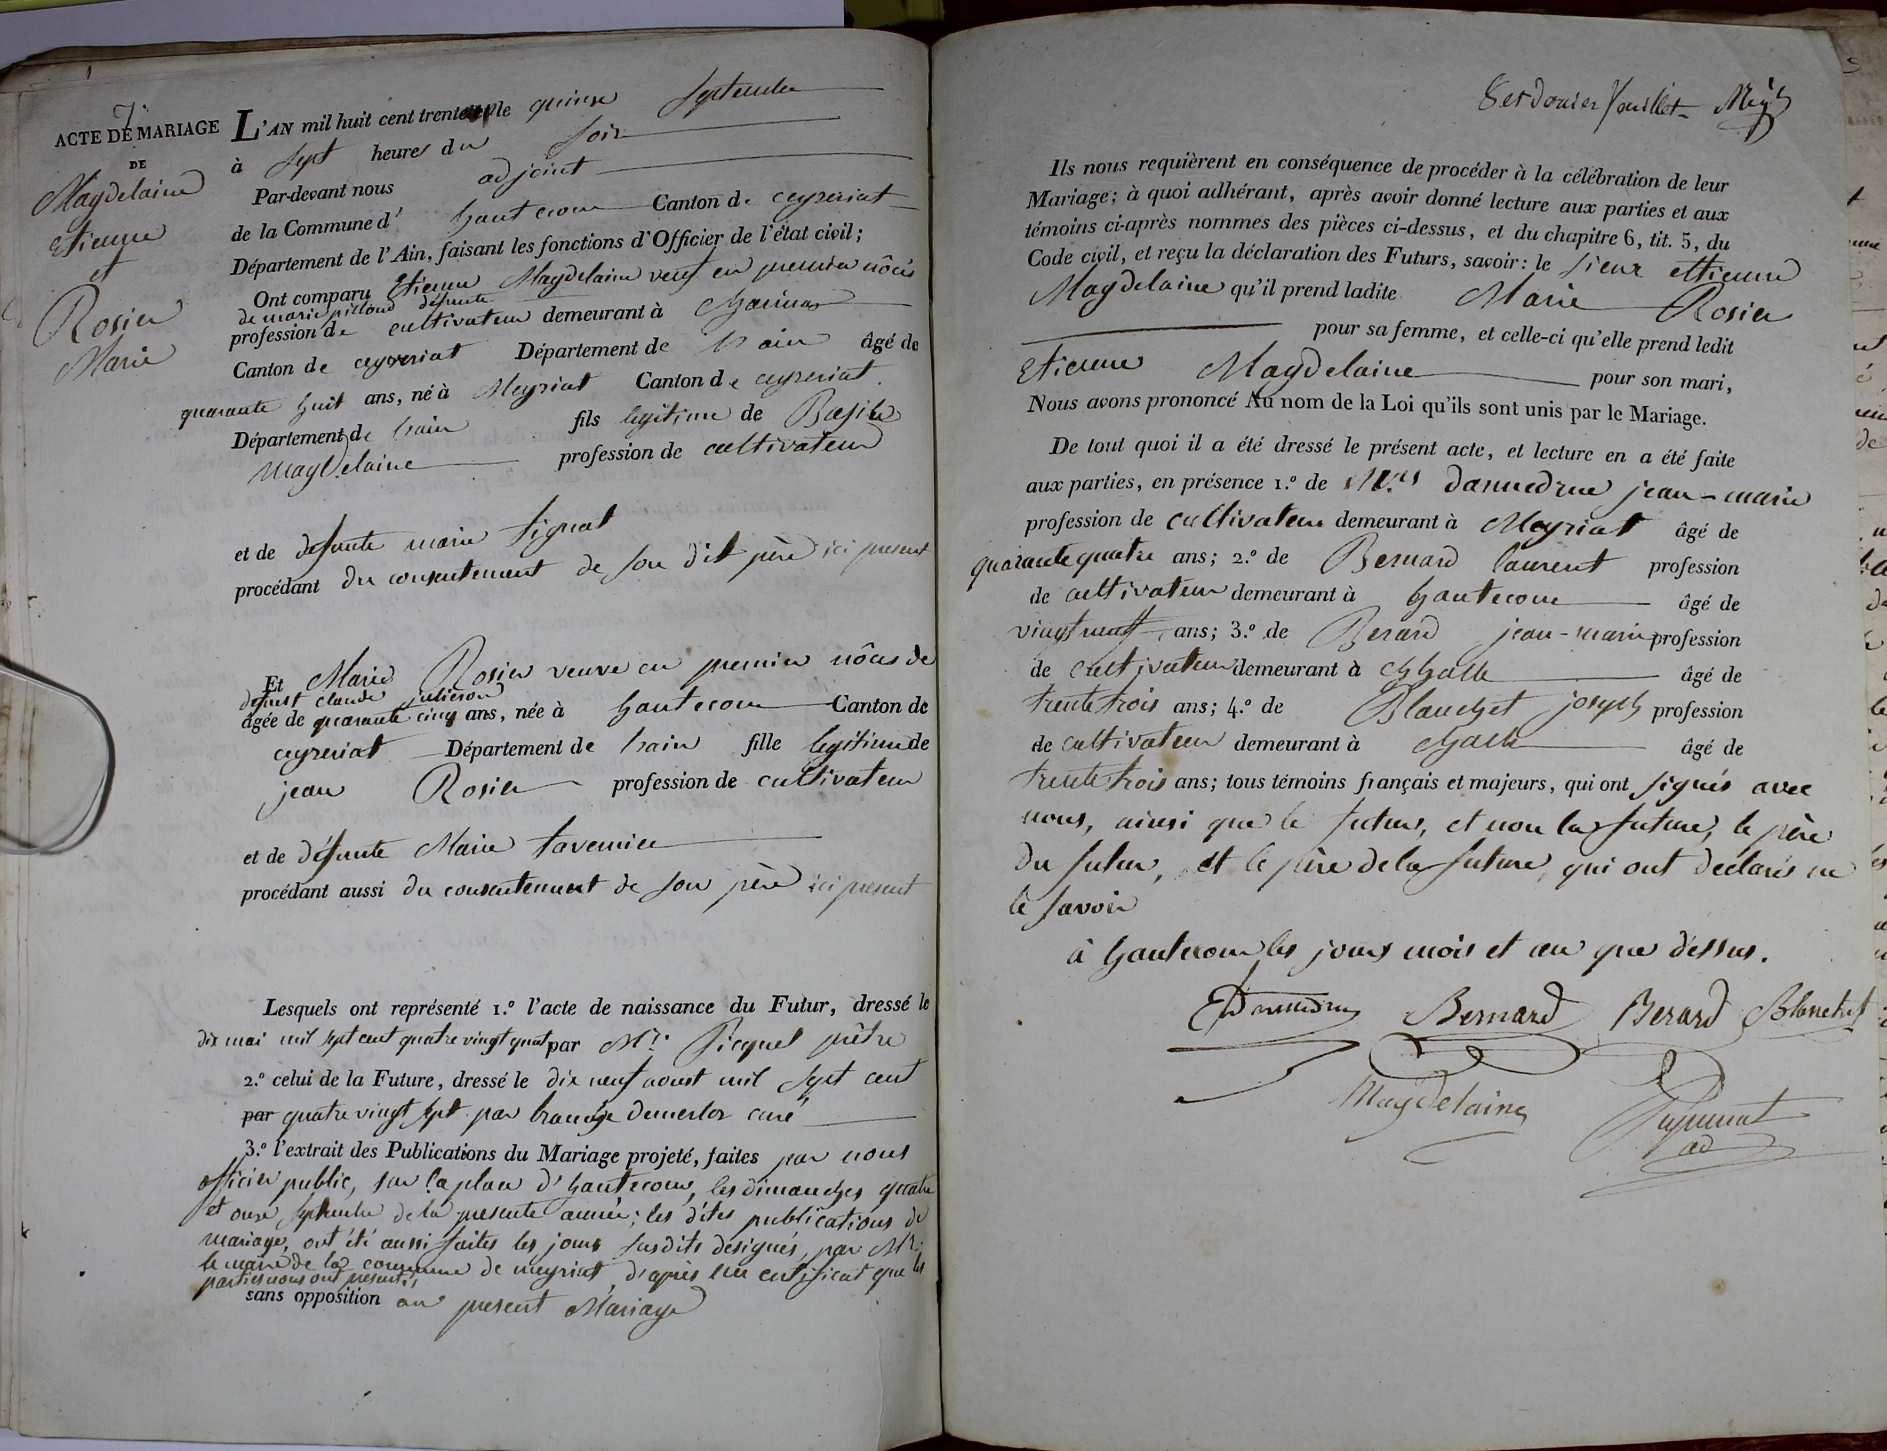 7.e
ACTE DE MARIAGE
DE
Magdelaine
Etienne
et
Rosier
Marie
L'AN mil huit cent trente le quinze septembre
à sept heures du soir
Par-devant nous adjoint
de la Commune d' hautecour Canton de ceyzeriat
Département de l'Ain, faisant les fonctions d'Officier de l'état civil;
Ont comparu Etienne Magdelaine veuf en premier nôces
de marie pillond défunte
profession de cultivateur demeurant à
Canton de ceyzeriat Département de lain âgé de
quarante huit ans, né à Meyriat Canton de ceyzeriat
Département de lain fils legitime de Basile
Magdelaine profession de cultivateur
et de defunte marie tignat
procédant du consentement de son dit père ici present
Et Marie Rosier veuve en premier nôces de
defunt claude julieron
âgée de quarante cinq ans, née à hautecour Canton de
ceyzeriat Département de lain fille legitime de
jean Rosier profession de cultivateur
et de défunte Marie tavernier
procédant aussi du consentement de son père ici present
Lesquels ont représenté 1.º l'acte de naissance du Futur, dressé le
dix mai mil sept cent quatre vingt quat par Mr. Picquet prêtre
2.º celui de la Future, dressé le dix neuf aoust mil sept cent
par quatre vingt sept par curé
3.º l'extrait des Publications du Mariage projeté, faites par nous
officier public, sur la place d'hautecour, les dimanches quatre
et onze septembre de la presente année; les dites publications de
mariage, ont été aussi faites les jours susdits designés, par Mr.
le maire de la commune de meyriat, d'après un certificat que les
parties nous ont presenté,
sans opposition au present Mariage
8 et dernier feuillet
Ils nous requièrent en conséquence de procéder à la célébration de leur
Mariage; à quoi adhérant, après avoir donné lecture aux parties et aux
témoins ci-après nommes des pièces ci-dessus, et du chapitre 6, tit. 5, du
Code civil, et reçu la déclaration des Futurs, savoir: le sieur ettienne
Magdelaine qu'il prend ladite Marie Rosier
pour sa femme, et celle-ci qu'elle prend ledit
Etienne Magdelaine pour son mari,
Nous avons prononcé Au nom de la Loi qu'ils sont unis par le Mariage.
De tout quoi il a été dressé le présent acte, et lecture en a été faite
aux parties, en présence 1.º de Mrs dannedrue jean-marie
profession de cultivateur demeurant à Meyriat âgé de
quarante quatre ans; 2.º de Bernard laurent profession
de cultivateur demeurant à hautecour âgé de
vingt neuf ans; 3.º de Berard jean-marie profession
de cultivateur demeurant à âgé de
trente trois ans; 4.º de Blanchet joseph profession
de cultivateur demeurant à âgé de
trente trois ans; tous témoins français et majeurs, qui ont signés avec
nous, ainsi que le futur, et non la future, le père
du futur, et le père de la future, qui ont declarés ne
le savoir
à hautecour les jours mois et an que dessus.
Bernard Berard Blanchet
Magdelaine
ad